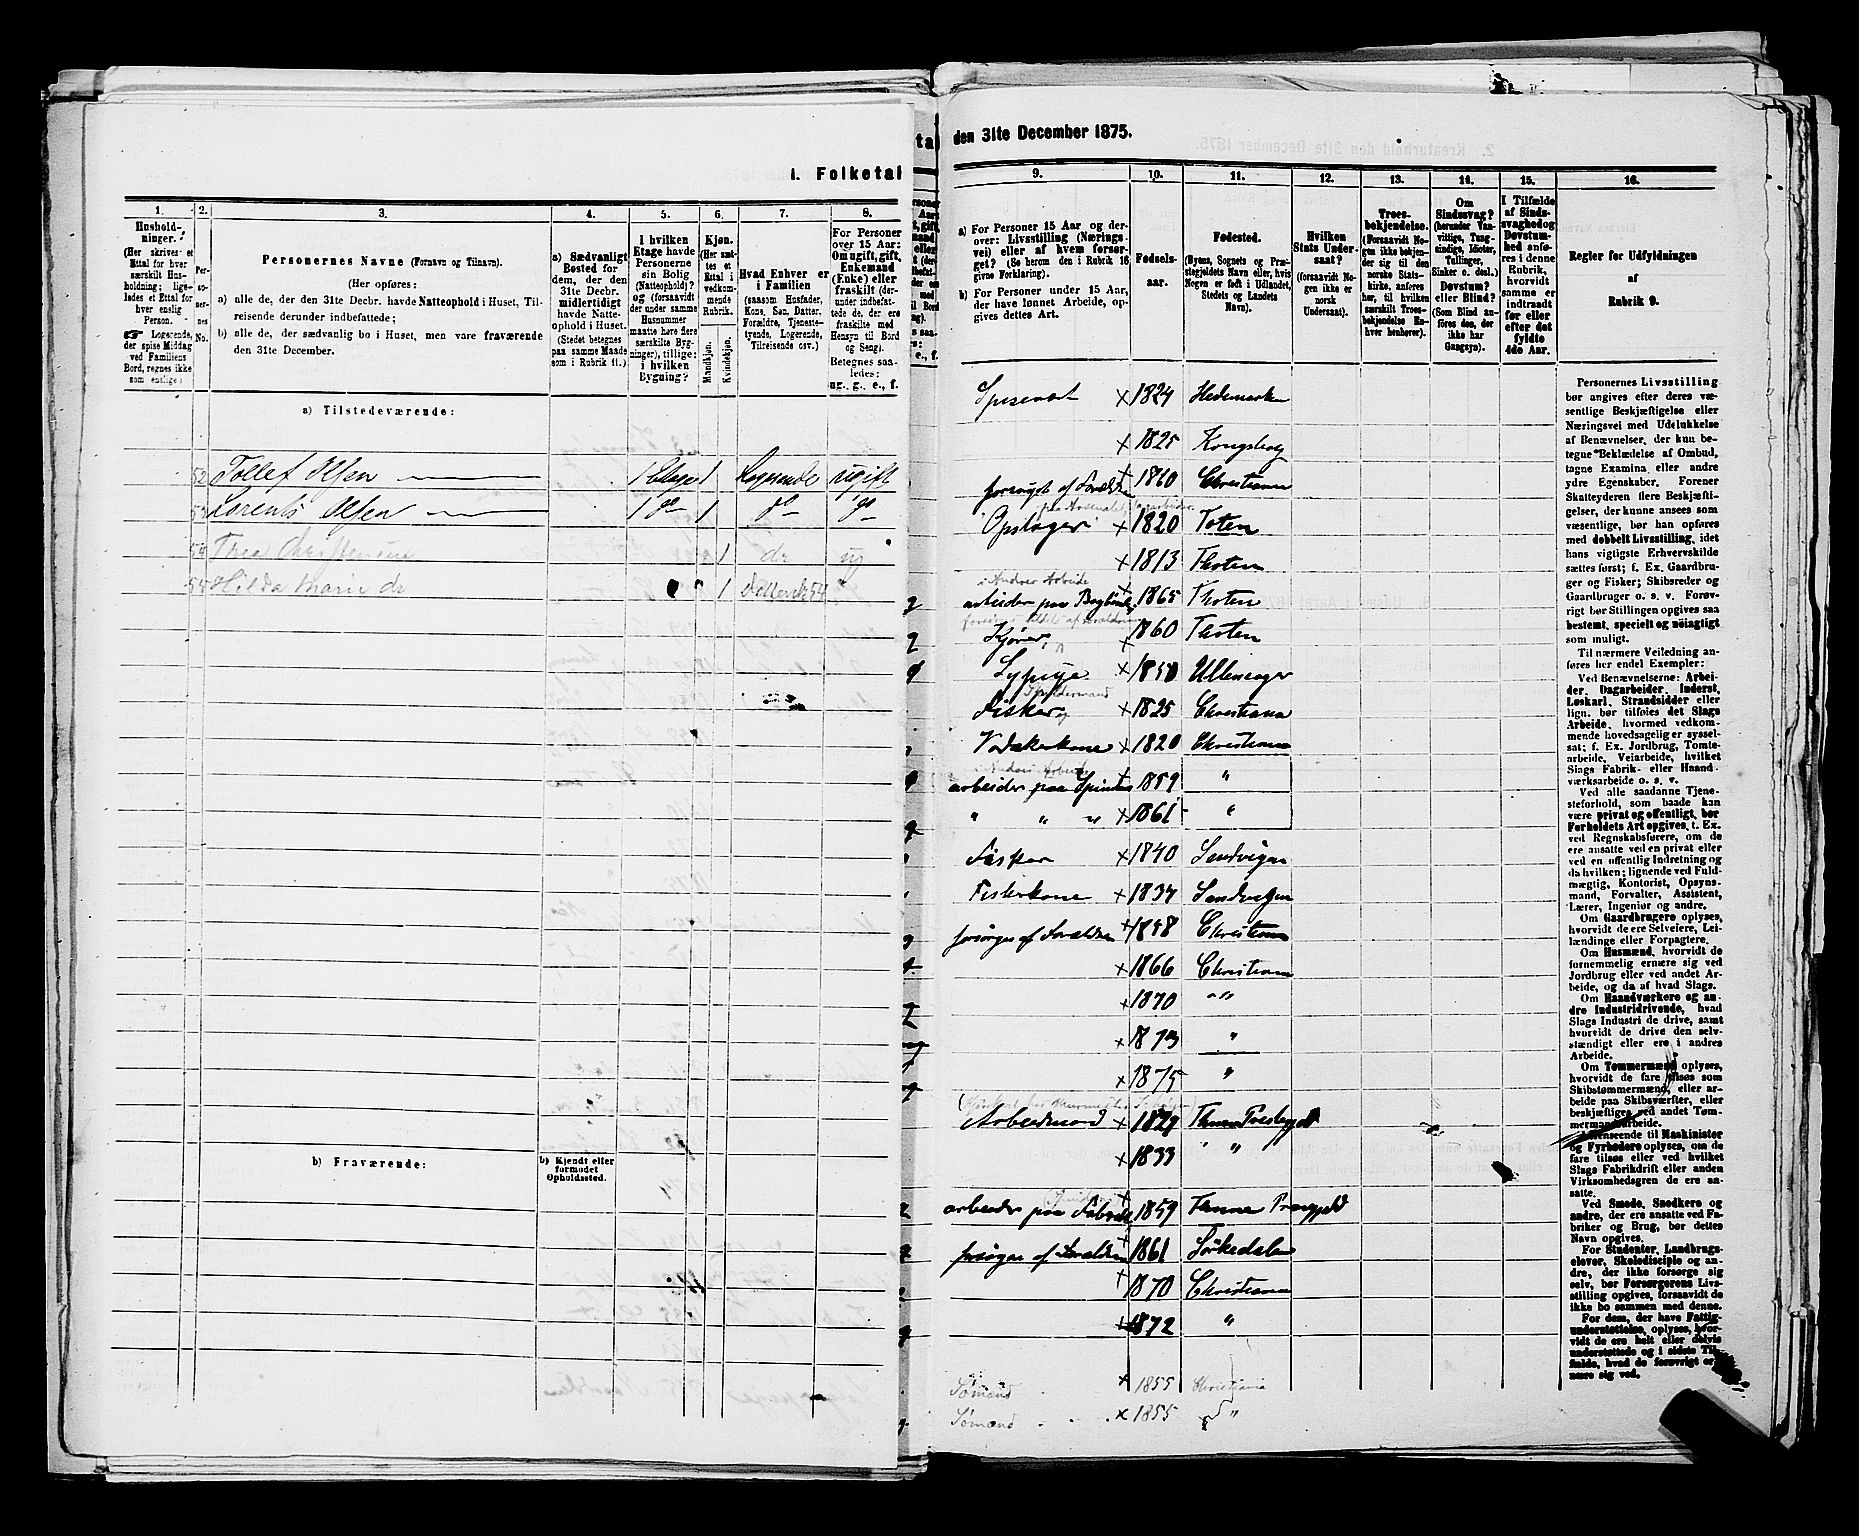 1. Folketal
1.
2.
3.
4.
5.
6.
7.
8.
Hushold-
ninger.
(Her skrives et
Ettal for hver
særskilt Hus-
holdning; lige-
ledes et Ettal for
hver enslig
Person.
☞ Logerende,
der spise Middag
ved Familiens
Bord, regnes ikke
som enslige.)
Per-
so-
ner-
nes
No.
Personernes Navne (Fornavn og Tilnavn).
(Her opføres:
a) alle de, der den 31te Decbr. havde Natteophold i Huset, Til-
reisende derunder indbefattede;
b) alle de, der sædvanlig bo i Huset, men vare fraværende
den 31te December.
a) Sædvanligt
Bosted for
dem, der den
31te Decbr.
midlertidigt
havde Natte-
ophold i Huset.
(Stedet betegnes
paa samme Maade
som i Rubrik 11.)
I hvilken
Etage havde
Personerne
sin Bolig
(Natteophold)?
og (forsaavidt
der under samme
Husnummer
maatte høre flere
særskilte Byg-
ninger), tillige:
i hvilken
Bygning?
Kjøn.
(Her sæt-
tes et
Ettal i
vedkom-
mende
Rubrik.
Mandkjøn.
Kvindekjøn.
Hvad Enhver er
i Familien
(saasom Husfader,
Kone, Søn, Datter,
Forældre, Tjeneste-
tyende, Logerende,
Tilreisende osv.)
For Personer
over 15 Aar:
Om ugift, gift,
Enkemand
(Enke) eller
fraskilt (der-
under indbefat-
tede de, der ere
fraskilte med
Hensyn til Bord
og Seng).
Betegnes saa-
ledes:
ug., g., e., f.
a) Tilstedeværende:
52 Tollef Olsen 1 Etage 1 Logerende ugift
53 Lorents Olsen 1 do 1 do do
54 Thea Christensen 1 do ug
55 Hilda Marie do " 1 Datter af 54
b) Fraværende:
b) Kjendt eller
formodet
Opholdssted.
den 31te December 1875.
9.
10.
11.
12.
13.
14.
15.
16.
a) For Personer 15 Aar og der-
over: Livsstilling (Nærings-
vei) eller af hvem forsør-
get? (Se herom den i Rubrik 16
givne Forklaring).
b) For Personer under 15 Aar,
der have lønnet Arbeide, op-
gives dettes Art.
Fødsels-
aar.
Fødested.
(Byens, Sognets og Præ-
stegjeldets Navn eller, hvis
Nogen er født i Udlandet,
Stedets og Landets
Navn).
Hvilken
Stats Under-
saat?
(forsaavidt No-
gen ikke er
norsk
Undersaat).
Troes-
bekjendelse.
(Forsaavidt No-
gen ikke bekjen-
der sig til den
norske Stats-
kirke, anføres
her, til hvilken
særskilt Troes-
bekjendelse En-
hver henhører).
Om
Sindssvag?
(herunder Van-
vittige, Tung-
sindige, Idioter,
Tullinger,
Sinker o. desl.)
Døvstum?
eller Blind?
(Som Blind an-
føres den, der
ikke har
Gangsyn).
I Tilfælde
af Sinds-
svaghed og
Døvstum-
hed anfø-
res i denne
Rubrik,
hvorvidt
samme er
indtraadt
før eller
efter det
fyldte
4de Aar.
Regler for Udfyldningen
af
Rubrik 9.
Spisevært × 1824 Hedemarken
× 1825 Kongsberg
forsørget af Forældre × 1860 Christiania
Opslager × 1820 Toten
× 1813 Thoten
i Andres Arbeide
arbeider paa × 1865 Thoten
Kjører × 1860 Thoten
Sypige × 1850 Ullensager
Fisker × 1825 Christiania
Vadskerkone × 1820 Christiania
i Andres Arbeide
arbeider paa Spinderi × 1859 "
" " " × 1861 "
Fisker × 1840 Sandvigen
Fiskerkone × 1834 Sandvigen
forsørges af Forældre × 1858 Christiania
× 1866 Christiania
× 1870 " "
× 1873 "
× 1875 "
Arbeidsmand × 1829 Præstegjeld
× 1833 " "
arbeider paa Fabrik × 1859
forsørges af Forældre × 1861 Sörkedalen
× 1870 Christiania
× 1872 "
Sømand × 1855 Christiania
Sømand × 1855 "
Personernes Livsstilling
bør angives efter deres væ-
sentlige Beskjæftigelse eller
Næringsvei med Udelukkelse
af Benævnelser, der kun be-
tegne Beklædelse af Ombud,
tagne Examina eller andre
ydre Egenskaber. Forener
Skatteyderen flere Beskjæfti-
gelser, der kunne ansees som
væsentlige, bør han opføres
med dobbelt Livsstilling, idet
hans vigtigste Erhvervskilde
sættes først; f. Ex. Gaardbru-
ger og Fisker; Skibsreder og
Gaardbruger o. s. v. Forøv-
rigt bør Stillingen opgives saa
bestemt, specielt og nøiagtigt
som muligt.
Til nærmere Veiledning an-
føres her endel Exempler:
Ved Benævnelserne: Arbei-
der, Dagarbeider, Inderst,
Løskarl, Strandsidder eller
lign. bør tilføies det Slags
Arbeide, hvormed vedkom-
mende hovedsagelig er syssel-
sat; f. Ex. Jordbrug, Tomte-
arbeide, Veiarbeide, hvilket
Slags Fabrik- eller Haand-
værksarbeide o. s. v.
Ved alle saadanne Tjene-
steforhold, som baade kan
være privat og offentligt, bør
Forholdets Art opgives, f. Ex.
ved Regnskabsførere, om de
ere ansatte ved en privat eller
ved en offentlig Indretning og
da hvilken; lignende ved Fuld-
mægtig, Kontorist, Opsyns-
mand, Forvalter, Assistent,
Lærer, Ingeniør og andre.
Om Gaardbrugere oplyses,
hvorvidt de ere Selveiere, Lei-
lændinge eller Forpagtere.
Om Husmænd, hvorvidt de
fornemmelig ernære sig ved
Jordbrug eller ved andet Ar-
beide, og da af hvad Slags.
Om Haandværkere og an-
dre Industridrivende, hvad
Slags Industri de drive, samt
hvorvidt de drive den selv-
stændigt eller ere i andres
Arbeide.
Om Tømmermænd oplyses,
hvorvidt de fare tilsøs som
Skibstømmermænd, eller ar-
beide paa Skibsværfter, eller
beskjæftiges ved andet Tøm-
mermandsarbeide.
Henseende til Maskinister
og Fyrbødere oplyses, om de
fare tilsøs eller ved hvilket
Slags Fabrikdrift eller anden
Virksomhedsgren de ere an-
satte.
Ved Smede, Snedkere og
andre, der ere ansatte ved Fa-
briker og Brug, bør dettes
Navn opgives.
For Studenter, Landbrugs-
elever, Skoledisciple og an-
dre, der ikke forsørge sig
selv, bør Forsørgerens Livs-
stilling opgives, forsaavidt de
ikke bo sammen med denne.
For dem, der have Fattig-
understøttelse, oplyses, hvor-
vidt de ere helt eller delvis
understøttede og i sidste Til-
fælde, hvad de forøvrigt er-
nære sig ved.